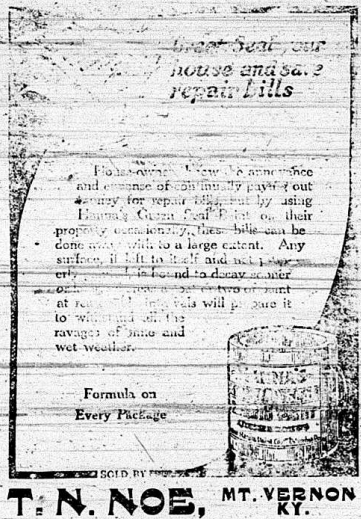 Green Seal your
house and save
repair bills
House-owners know the annoyance
and expense of continually paying out
money for repair bills, but by using
Hanna's Green Seal Paint on their
property occasionally, these bills can be
done away with to a large extent. Any
surface, if left to itself and not
is bound to decay sooner
or
at intervals will prepare it
to withstand all the
ravages of time and
wet weather.
Formula on
Every Package
SOLD BY
T. N. NOE, MT. VERNON
KY.